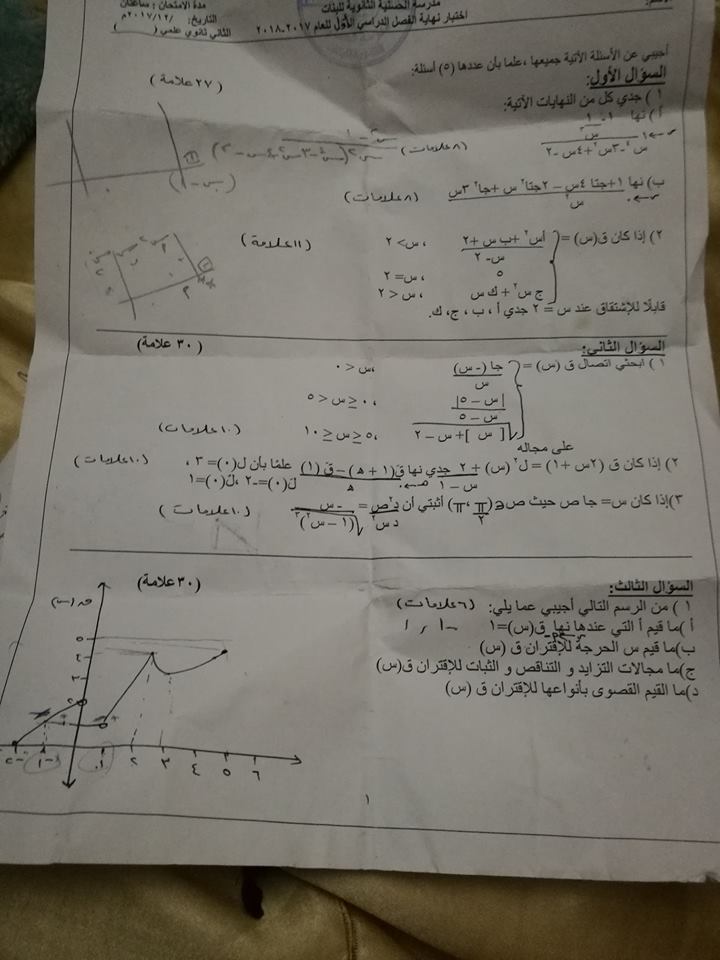 مدرسة الحصينية الثانوية للبنات
مدة الامتحان : ساعتان
اختبار نهاية الفصل الدراسي الأول للعام ٢٠١٧-٢٠١٨
التاريخ: /١٢/ ٢٠١٧م
الثاني ثانوي علمي ( )
أجيبي عن الأسئلة الآتية جميعها ،علما بأن عددها (٥) أسئلة:
السؤال الأول: (٢٧ علامة)
١ ) جدي كل من النهايات الآتية:
أ) نها س←١ (١ - ١/س٢) / (س٤-٣س٢+٤س-٢) (٨ علامات)
ب) نها س←٠ (١+جتا ٤س - ٢جتا٢ س +جا٢ ٣س) / س٢ (٨ علامات)
٢) إذا كان ق(س) = (أس٢ +ب س +٢) / (س-٢) ، س> ٢ (١١ علامة)
٥ ، س= ٢
ج س٢ + ك س ، س < ٢
قابلًا للإشتقاق عند س = ٢ جدي أ ، ب ، ج، ك.
السؤال الثاني: (٣٠ علامة)
١ ) ابحثي اتصال ق (س) = جا (- س) / س ، س < ٠
|س – ٥| / (س – ٥) ، ٠ ≤ س < ٥
√([ س ]+ س – ٢) ، ٥ ≤ س ≤ ١٠ (١٠ علامات)
على مجاله
٢) إذا كان ق (٢س + ١) = ل٢ (س) + ٢/(س – ١) جدي نها ه←٠ (ق(١ + ه) – ق (١)) / ه علمًا بأن ل(٠)= ٣ ، (١٠ علامات)
لَ(٠)=-٢ ،لً(٠)=١
٣)إذا كان س= جا ص حيث ص∈(π/٢ ،π) أثبتي أن د٢ص/دس٢ = -س / √(١-س٢)٣ (١٠ علامات)
السؤال الثالث: (٣٠ علامة)
١ ) من الرسم التالي أجيبي عما يلي: (٦ علامات)
أ )ما قيم أ التي عندها نها ق(س)=١ -١ ، ١
ب)ما قيم س الحرجة للإقتران ق (س)
ج)ما مجالات التزايد و التناقص و الثبات للإقتران ق(س)
د)ما القيم القصوى بأنواعها للإقتران ق (س)
ق (س)
٥
٤
٣
٢
-٢ -١ ١ ٢ ٣ ٤ ٥ ٦
١